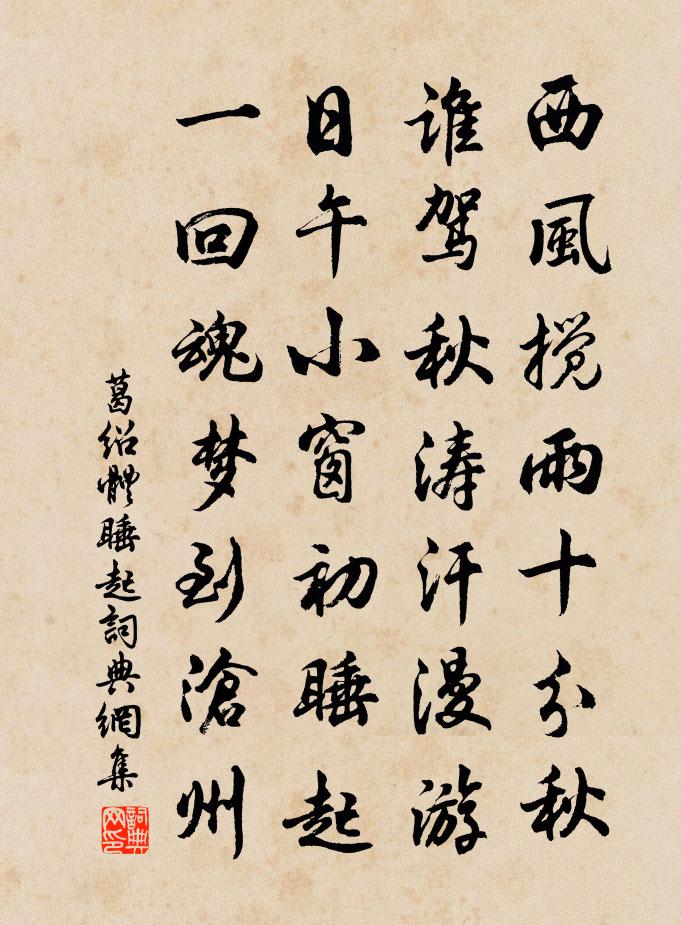 西風搅雨十分秋
谁驾秋涛汗漫游
日午小窗初睡起
一回魂梦到滄州
葛绍體睡起詞典網集
詞典网印